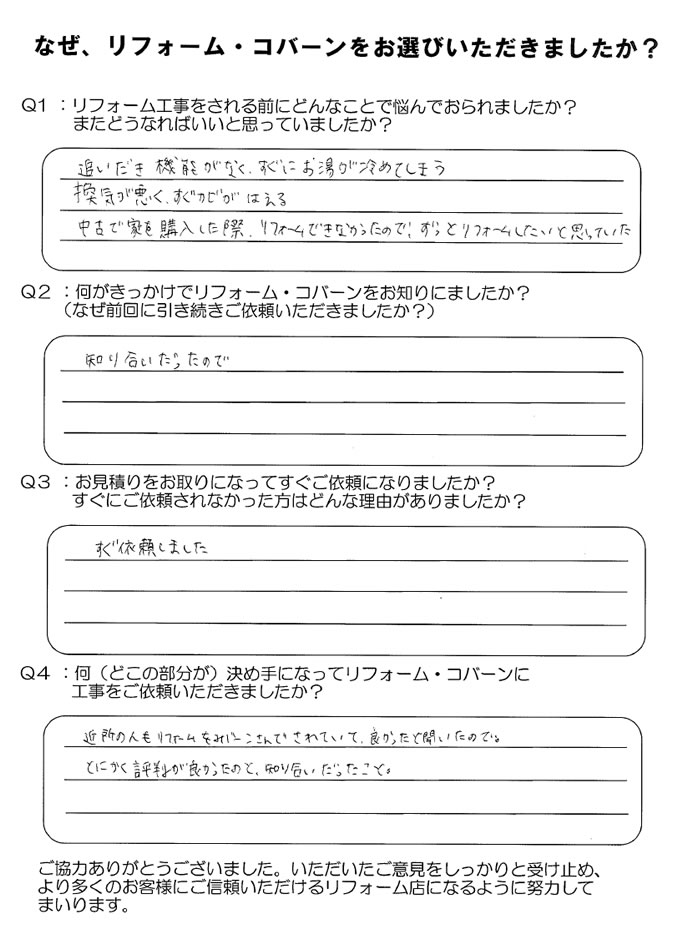 なぜ、リフォーム・コバーンをお選びいただきましたか？
Q1 ：リフォーム工事をされる前にどんなことで悩んでおられましたか？
またどうなればいいと思っていましたか？
追いだき機能がなく、すぐにお湯が冷めてしまう
換気が悪く、すぐカビがはえる
中古で家を購入した際、リフォームできなかったので、ずっとリフォームしたいと思っていた
Q2 ：何がきっかけでリフォーム・コバーンをお知りにましたか？
（なぜ前回に引き続きご依頼いただきましたか？）
知り合いだったので
Q3 ：お見積りをお取りになってすぐご依頼になりましたか？
すぐにご依頼されなかった方はどんな理由がありましたか？
すぐ依頼しました
Q4 ：何（どこの部分が）決め手になってリフォーム・コバーンに
工事をご依頼いただきましたか？
近所の人もリフォームをコバーンさんでされていて、良かったと聞いたので。
とにかく評判が良かったのと、知り合いだったこと。
ご協力ありがとうございました。いただいたご意見をしっかりと受け止め、
より多くのお客様にご信頼いただけるリフォーム店になるように努力して
まいります。